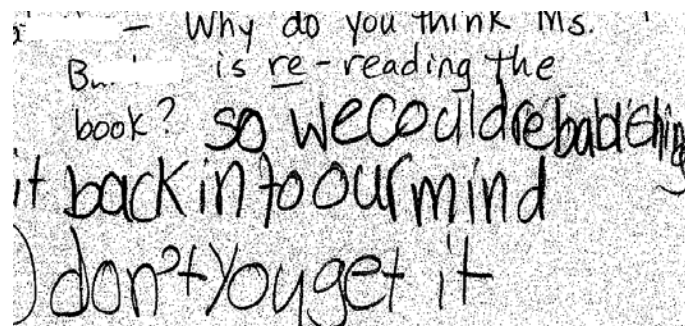 — Why do you think Ms.
is re-reading the
book? so we could
it back in to our mind
don't you get it